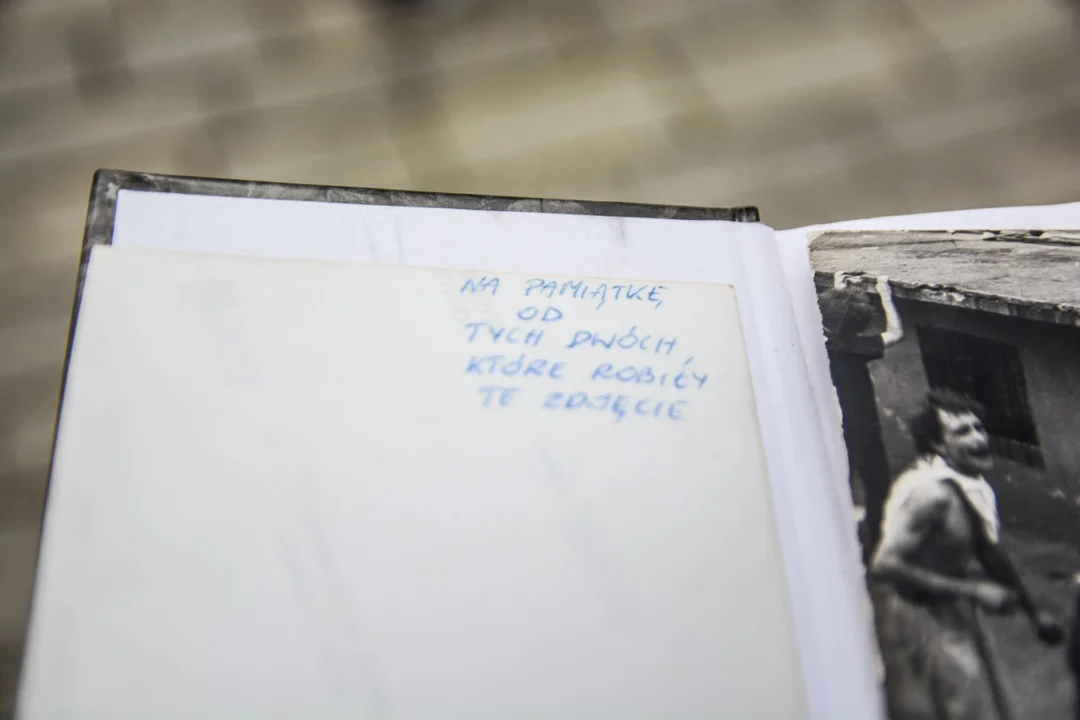 NA PAMIĄTKĘ
OD
TYCH DWÓCH,
KTÓRE ROBIŁY
TE ZDJĘCIE